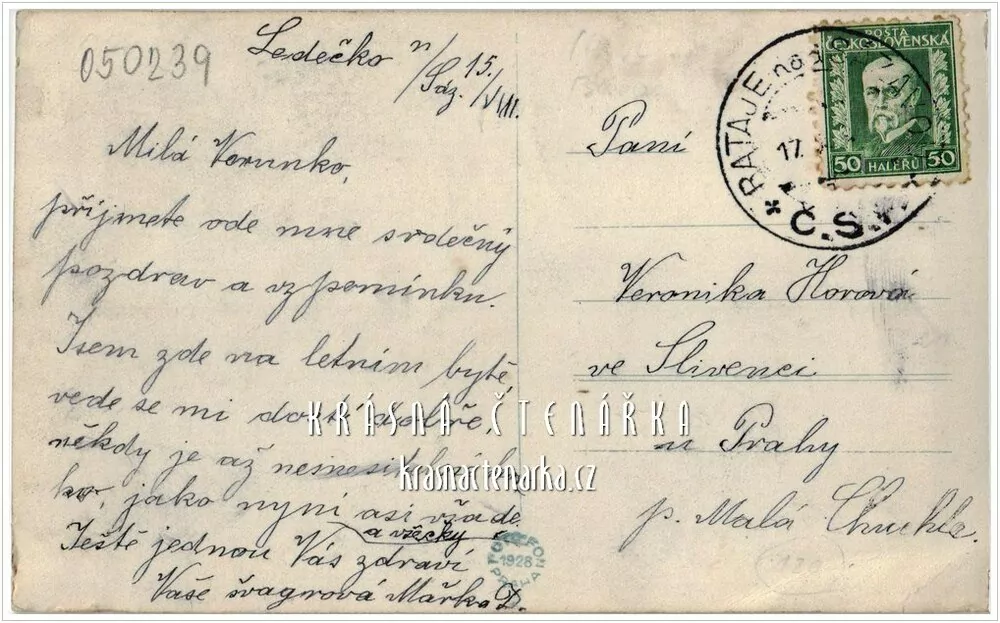 050239
Ledečko n/Sáz. 15./VIII.
Milá Verunko,
přijmete ode mne srdečný
pozdrav a vzpomínku.
Jsem zde na letním bytě,
vede se mi dosti dobře,
někdy je až
ko, jako nyní asi všade
a všecky
Ještě jednou Vás zdraví
Vaše švagrová Mářka D.
POŠTA
ČESKOSLOVENSKÁ
50 HALÉŘŮ 50
* RATAJE nad
17.
Č.S.
Paní
Veronika Horová
ve Slivenci
u Prahy
p. Malá Chuchle
KRÁSNÁ ČTENÁŘKA
krasnactenarka.cz
1928
PRAHA